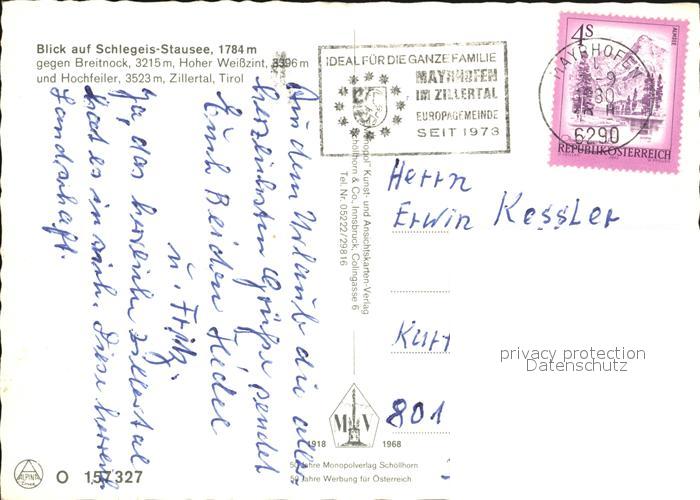 Blick auf Schlegeis-Stausee, 1784 m
gegen Breitnock, 3215 m, Hoher Weißzint, 3396 m
und Hochfeiler, 3523 m, Zillertal, Tirol
Aus dem Urlaub die aller-
herzlichsten Grüße sendet
Euch Beiden Hedel
u. Fritz.
Ja, das herrliche Zillertal
hat es in sich. Diese
Landschaft.
IDEAL FÜR DIE GANZE FAMILIE
MAYRHOFEN
IM ZILLERTAL
EUROPAGEMEINDE
SEIT 1973
4 S
MAYRHOFEN
6290
REPUBLIK ÖSTERREICH
Kunst- und Ansichtskarten-Verlag
Schöllhorn & Co., Innsbruck, Colingasse 6
Tel. Nr. 05222/29816
Herrn
Erwin Kessler
801
privacy protection
Datenschutz
M V
1918 1968
50 Jahre Monopolverlag Schöllhorn
50 Jahre Werbung für Österreich
ALPINA
O 157327